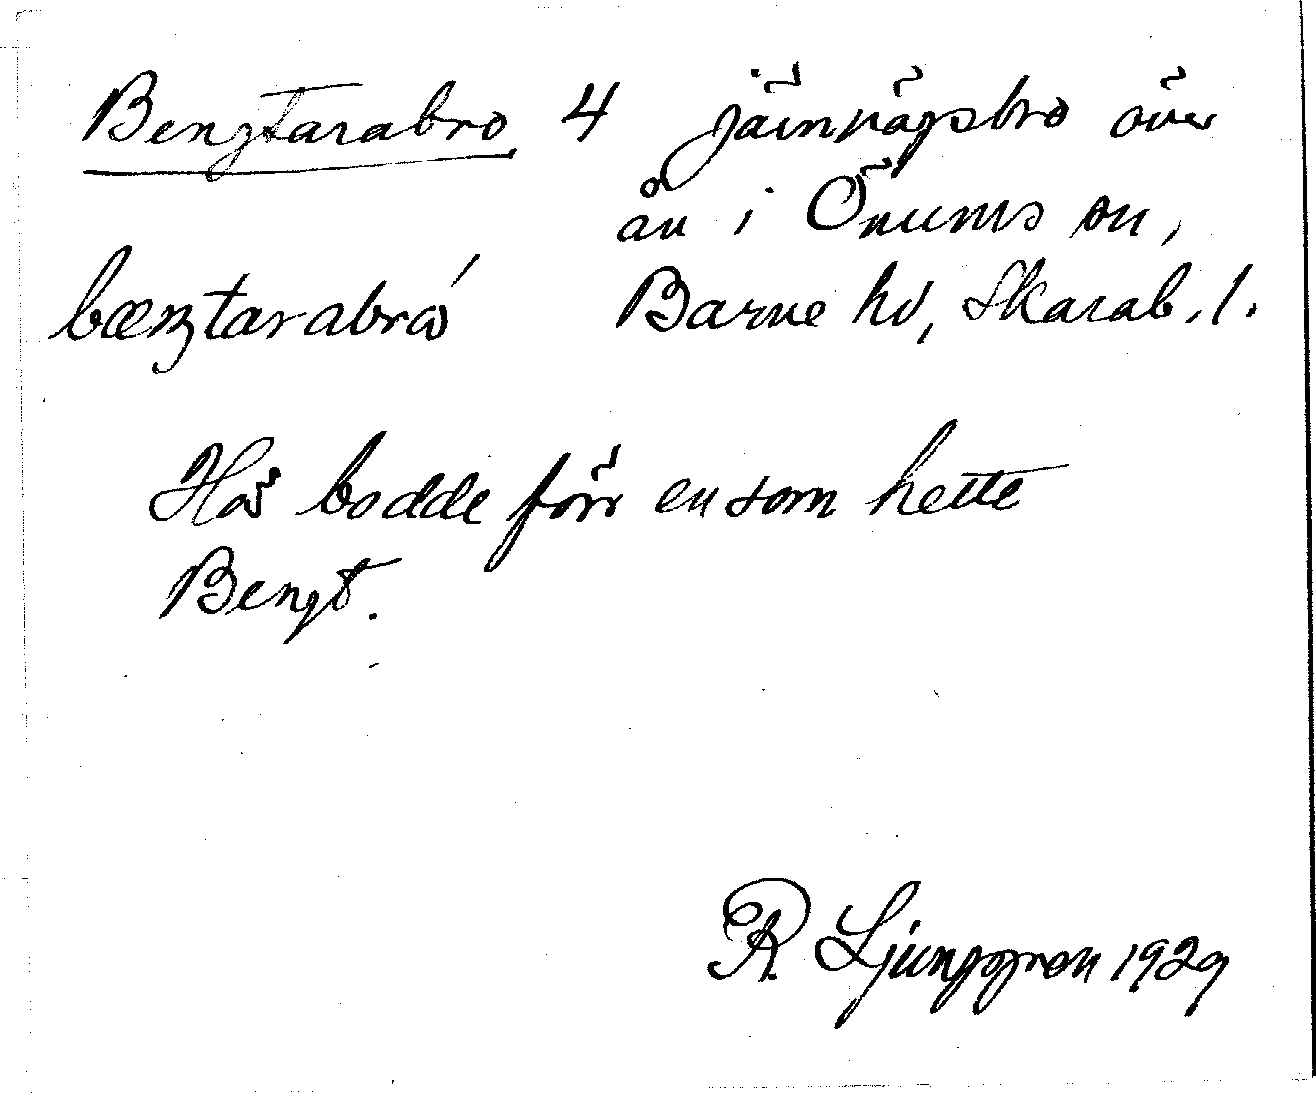 Bengtarabro 4 järnvägsbro över
ån i Önums sn,
bæŋtarabró Barne hd, Skarab. l.
Här bodde förr en som hette
Bengt.
R Ljunggren 1929